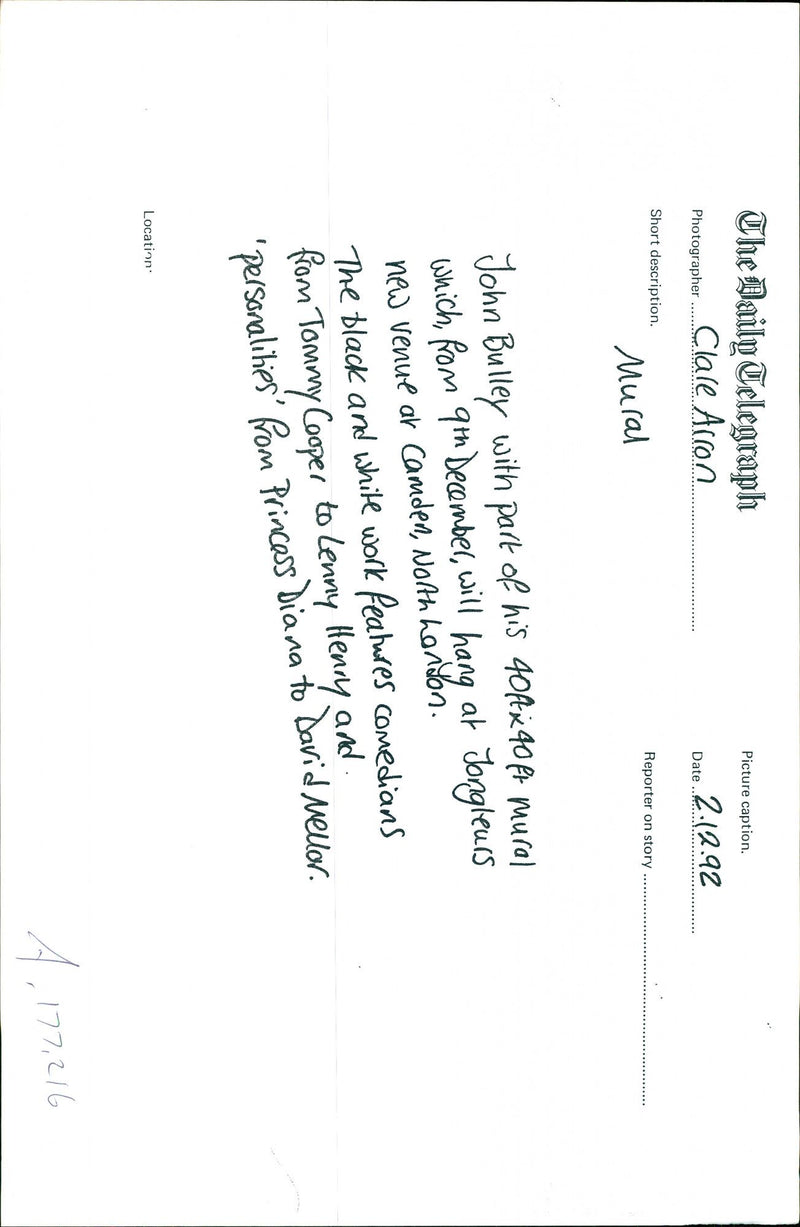 The Daily Telegraph
Picture caption.
Photographer Clare Arron
Date 2.12.92
Short description. Mural
Reporter on story
John Bulley with part of his 40ft x 40ft mural
which, from 9th December, will hang at Jongleurs
new venue at Camden, North London.
The black and white work features comedians
from Tommy Cooper to Lenny Henry and
'personalities' from Princess Diana to David Mellor.
Location:
A, 177,216